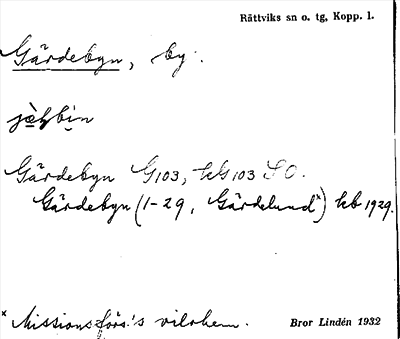 Rättviks sn o. tg, Kopp. l.
Gärdebyn, by.
Gärdebyn G103, hG103 SO.
Gärdebyn (1-29, Gärdelund×) kb 1929.
× Missionsförs:s vilohem.
Bror Lindén 1932